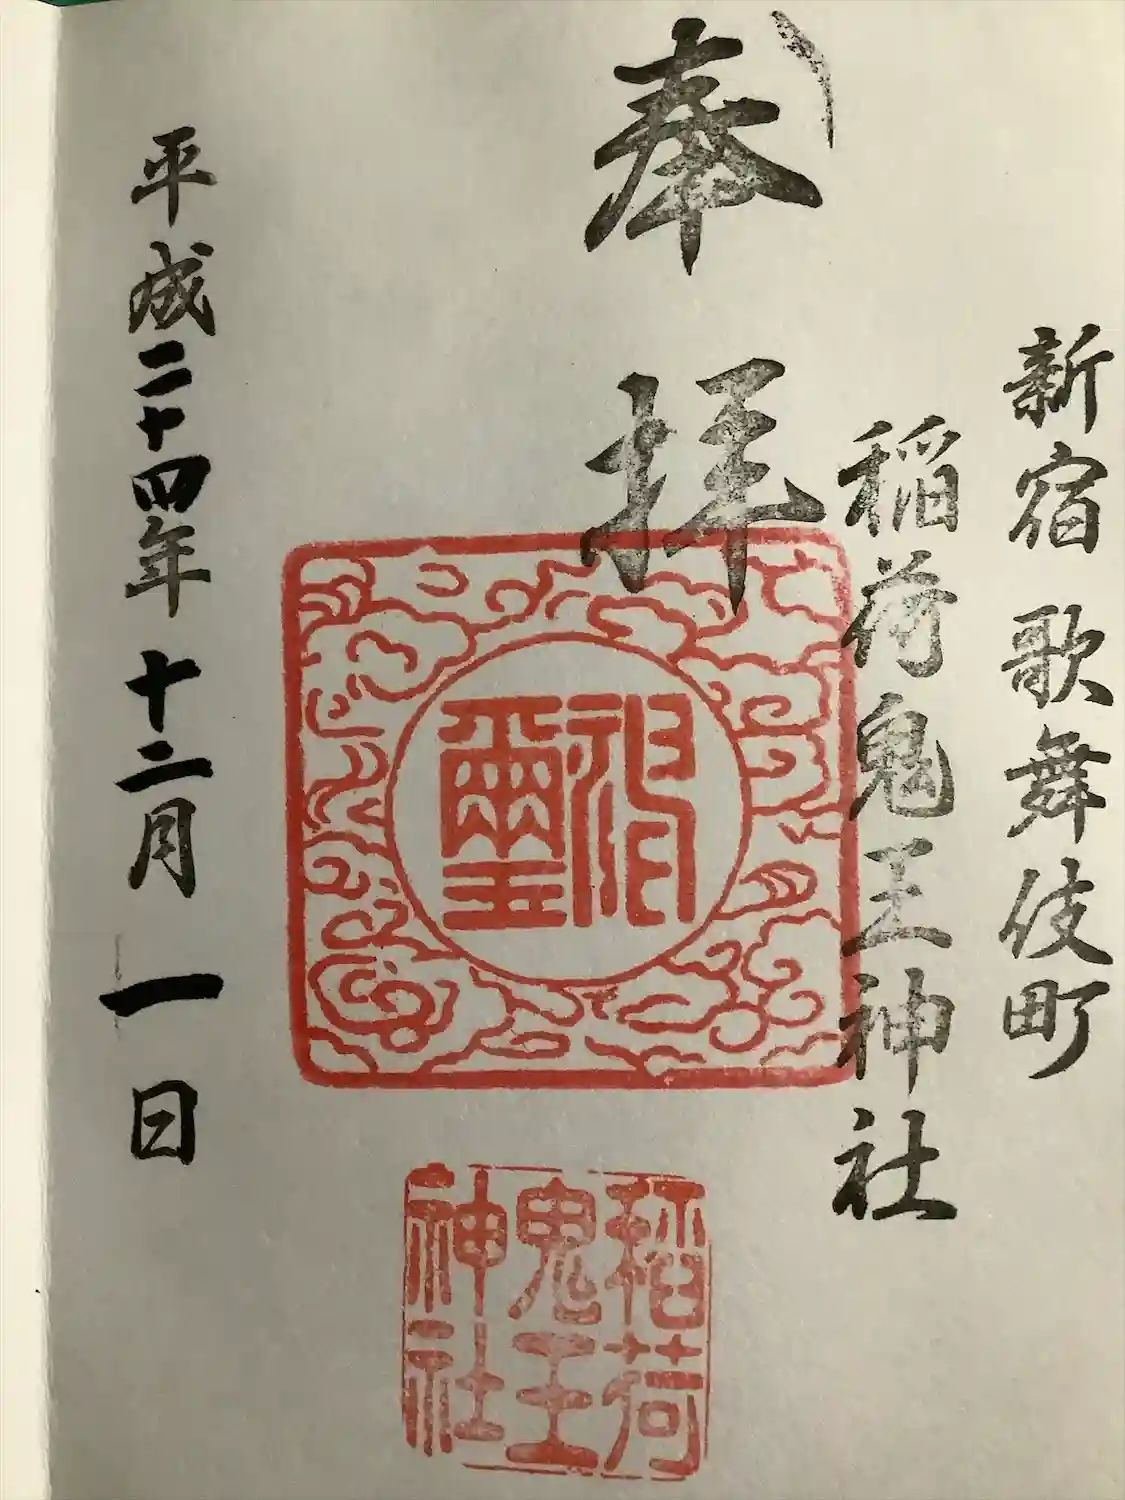 新宿 歌舞伎町
稲荷鬼王神社
奉拝
神璽
稲荷
鬼王
神社
平成二十四年 十二月 一日